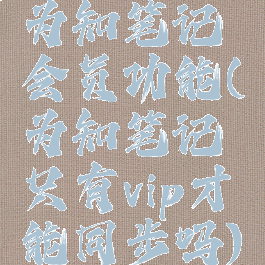 为知笔记
会员功能(
为知笔记
只有vip才
能同步吗)